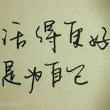 活得更好
是为自己